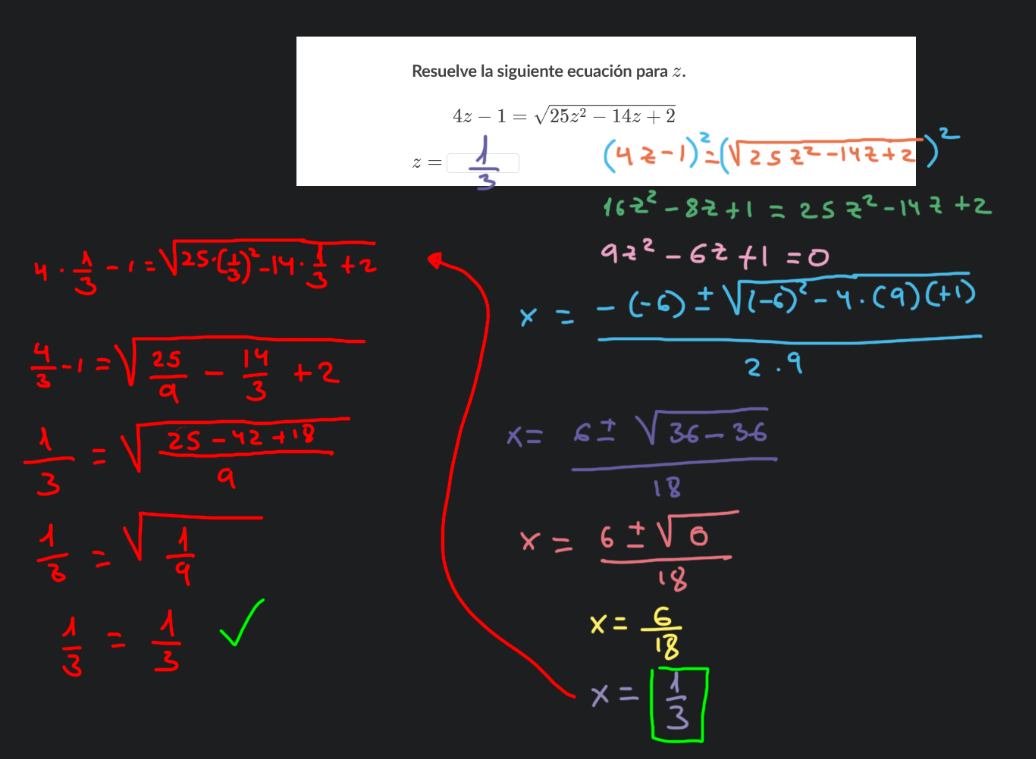 Resuelve la siguiente ecuación para z.
4z − 1 = √(25z² − 14z + 2)
z = 1/3
(4z-1)² = (√(25z²-14z+2))²
16z² - 8z + 1 = 25z² - 14z + 2
9z² - 6z + 1 = 0
x = (-(-6) ± √((-6)² - 4·(9)(+1))) / (2·9)
x = (6 ± √(36-36)) / 18
x = (6 ± √0) / 18
x = 6/18
x = 1/3
4 · 1/3 - 1 = √(25·(1/3)² - 14 · 1/3 + 2)
4/3 - 1 = √(25/9 - 14/3 + 2)
1/3 = √((25 - 42 + 18)/9)
1/3 = √(1/9)
1/3 = 1/3 ✓